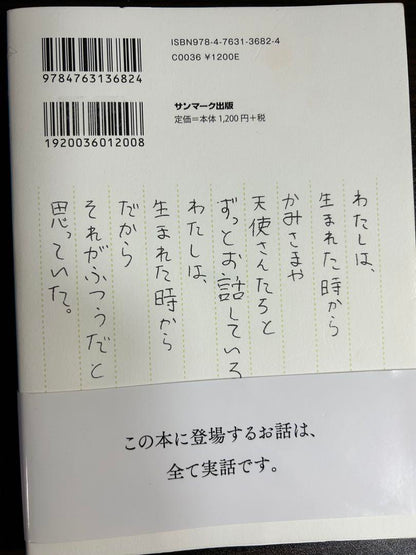 ISBN978-4-7631-3682-4
C0036 ¥1200E
9784763136824
サンマーク出版
定価=本体 1,200円+税
1920036012008
わたしは、
生まれた時から
かみさまや
天使さんたちと
ずっとお話している
わたしは、
生まれた時から
だから
それがふつうだと
思っていた。
この本に登場するお話は、
全て実話です。